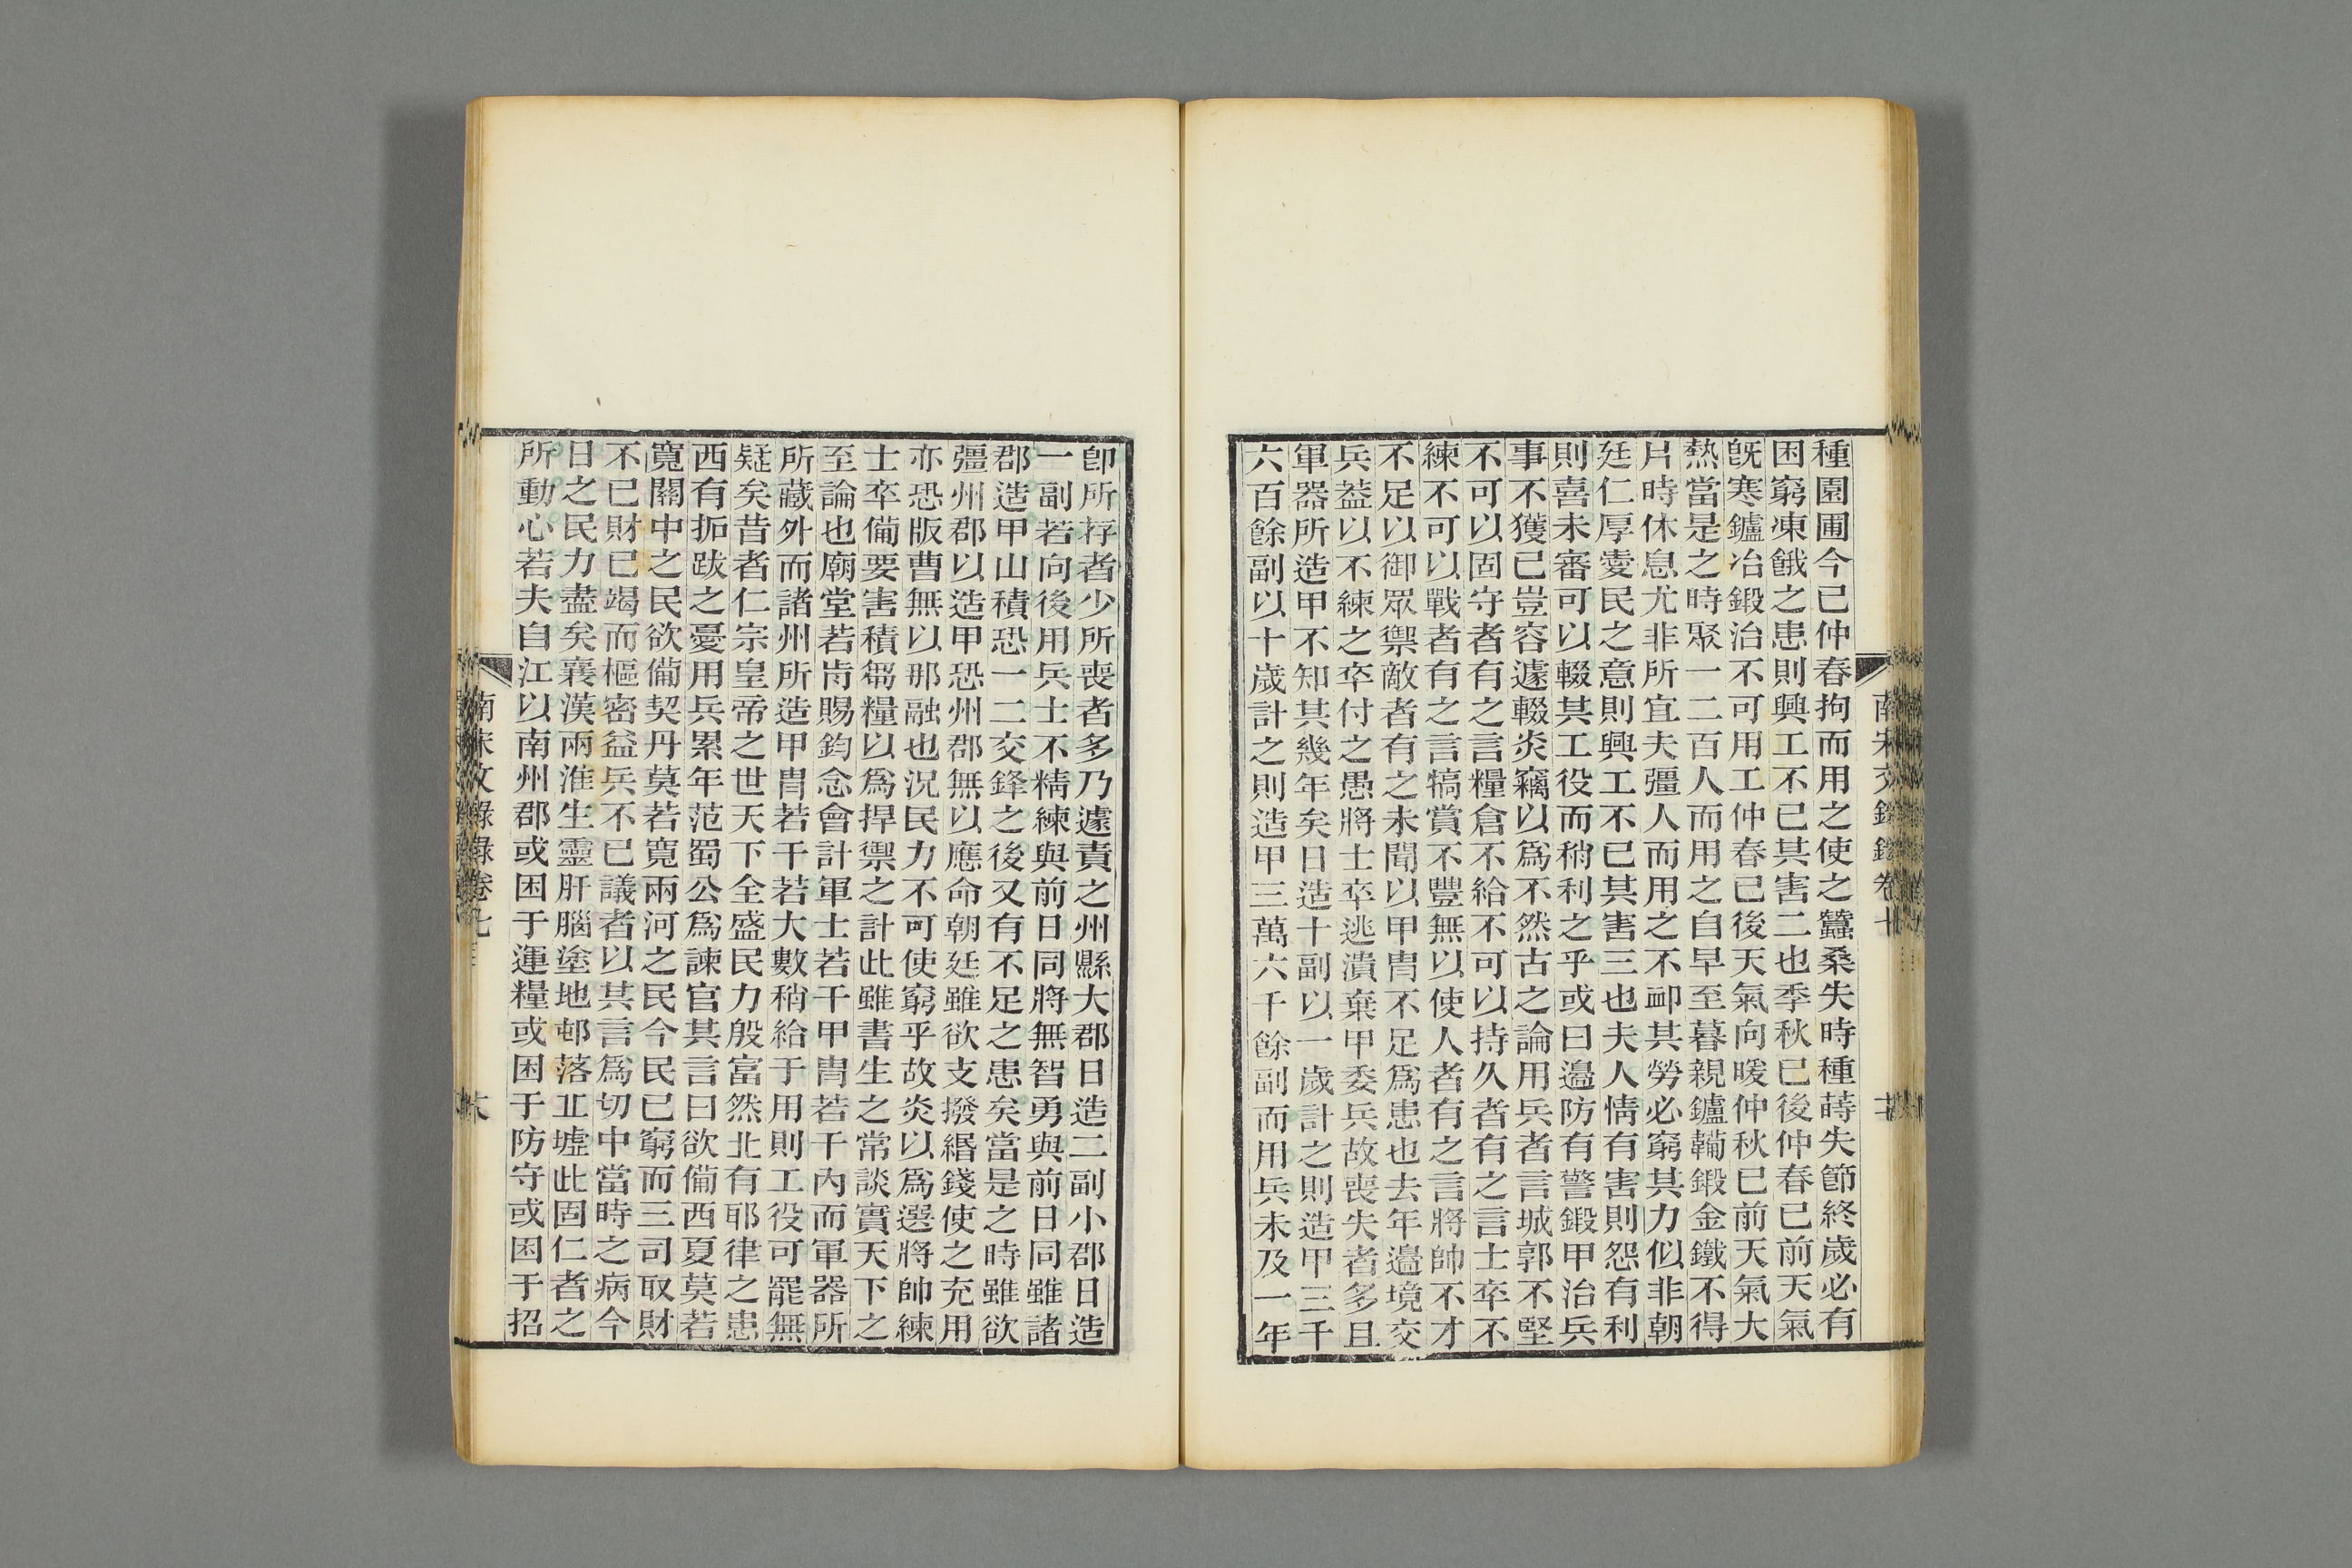 種園圃今已仲春拘而用之使之蠶桑失時種蒔失節終歲必有
困窮凍餓之患則興工不已其害二也季秋已後仲春已前天氣
旣寒鑪冶鍛治不可用工仲春已後天氣向暖仲秋已前天氣大
熱當是之時聚一二百人而用之自早至暮親鑪鞴鍛金鐵不得
片時休息尤非所宜夫彊人而用之不卹其勞必窮其力似非朝
廷仁厚愛民之意則興工不已其害三也夫人情有害則怨有利
則喜未審可以輟其工役而稍利之乎或曰邉防有警鍛甲治兵
事不獲已豈容遽輟炎竊以爲不然古之論用兵者言城郭不堅
不可以固守者有之言糧倉不給不可以持久者有之言士卒不
練不可以戰者有之言犒賞不豐無以使人者有之言將帥不才
不足以御眾禦敵者有之未聞以甲冑不足爲患也去年邉境交
兵葢以不練之卒付之愚將士卒逃潰棄甲委兵故喪失者多且
軍器所造甲不知其幾年矣日造十副以一歲計之則造甲三千
六百餘副以十歲計之則造甲三萬六千餘副而用兵未及一年
南宋文錄錄卷七
卽所存者少所喪者多乃遽責之州縣大郡日造二副小郡日造
一副若向後用兵士不精練與前日同將無智勇與前日同雖諸
郡造甲山積恐一二交鋒之後又有不足之患矣當是之時雖欲
彊州郡以造甲恐州郡無以應命朝廷雖欲支撥緡錢使之充用
亦恐版曹無以那融也況民力不可使窮乎故炎以爲選將帥練
士卒備要害積芻糧以爲捍禦之計此雖書生之常談實天下之
至論也廟堂若肯賜鈞念會計軍士若干甲冑若干內而軍器所
所藏外而諸州所造甲冑若干若大數稍給于用則工役可罷無
疑矣昔者仁宗皇帝之世天下全盛民力殷富然北有耶律之患
西有拓跋之憂用兵累年范蜀公爲諫官其言曰欲備西夏莫若
寬關中之民欲備契丹莫若寬兩河之民今民已窮而三司取財
不已財已竭而樞密益兵不已議者以其言爲切中當時之病今
日之民力盡矣襄漢兩淮生靈肝腦塗地邨落丘墟此固仁者之
所動心若夫自江以南州郡或困于運糧或困于防守或困于招
南宋文錄錄卷七